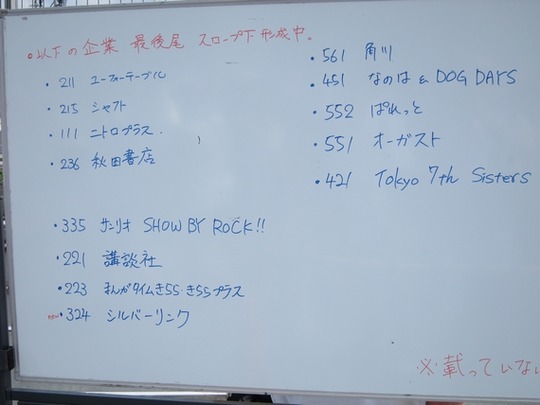 ○以下の企業 最後尾 スロープ下形成中。
・211 ユーフォーテーブル
・215 シャフト
・111 ニトロプラス.
・236 秋田書店
・335 サンリオ SHOW BY ROCK!!
・221 講談社
・223 まんがタイムきらら・きららプラス
new・324 シルバーリンク
・561 角川
・451 なのは & DOG DAYS
・552 ぱれっと
・551 オーガスト
・421 Tokyo 7th Sisters
※載っていない